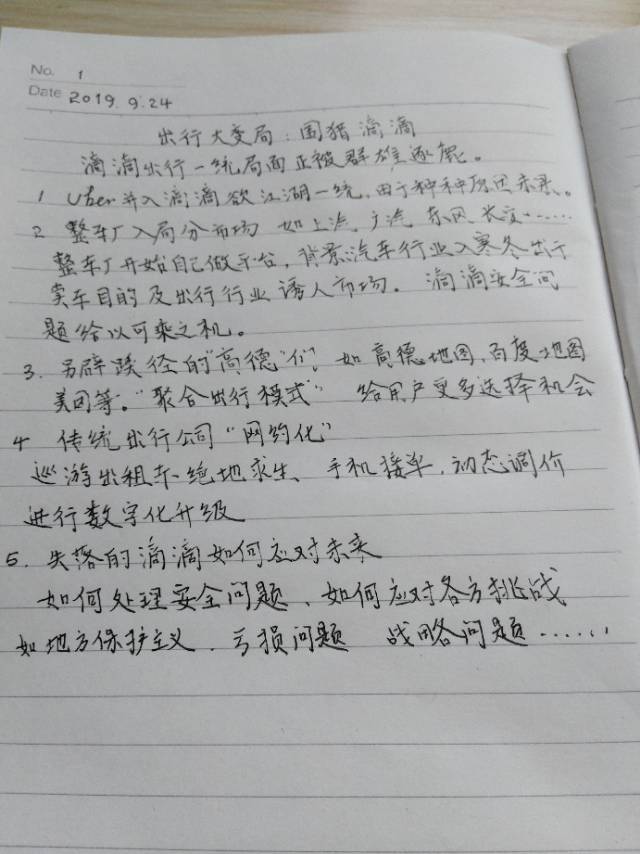 No. 1
Date 2019.9.24
出行大变局:围猎滴滴
滴滴出行一统局面正被群雄逐鹿。
1 Uber并入滴滴欲江湖一统,由于种种原因未果。
2 整车厂入局分市场 如上汽 广汽 东风 长安……
整车厂开始自己做平台,背景:汽车行业入寒冬出于
卖车目的及出行行业诱人市场。 滴滴安全问
题给以可乘之机。
3. 另辟蹊径的“高德”们 如高德地图,百度地图
美团等。“聚合出行模式” 给用户更多选择机会
4 传统出行公司“网约化”
巡游出租车绝地求生、手机接单,动态调价
进行数字化升级
5. 失落的滴滴如何应对未来
如何处理安全问题、如何应对各方挑战
如地方保护主义.亏损问题 战略问题……